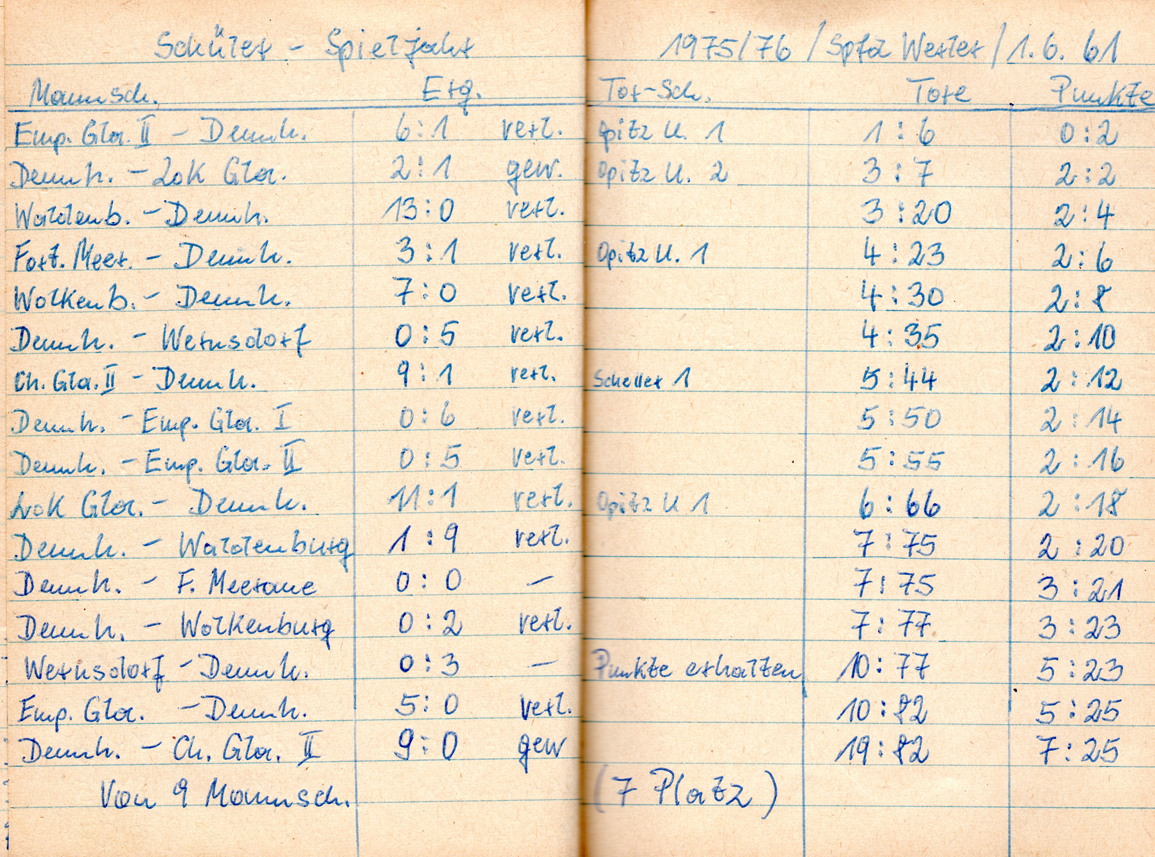 Schüler - Spieljahr 1975/76 / Spfd Werler / 1.6.61
Mannsch. Erg. Tor-Sch. Tore Punkte
Emp. Gla. II - Dennh. 6:1 verl. Opitz U. 1 1:6 0:2
Dennh. - Lok Gla. 2:1 gew. Opitz U. 2 3:7 2:2
Waldenb. - Dennh. 13:0 verl. 3:20 2:4
Fort. Meer. - Dennh. 3:1 verl. Opitz U. 1 4:23 2:6
Wolkenb. - Dennh. 7:0 verl. 4:30 2:8
Dennh. - Wernsdorf 0:5 verl. 4:35 2:10
Ch. Gla. II - Dennh. 9:1 verl. Scheller 1 5:44 2:12
Dennh. - Emp. Gla. I 0:6 verl. 5:50 2:14
Dennh. - Emp. Gla. II 0:5 verl. 5:55 2:16
Lok Gla. - Dennh. 11:1 verl. Opitz U 1 6:66 2:18
Dennh. - Waldenburg 1:9 verl. 7:75 2:20
Dennh. - F. Meerane 0:0 — 7:75 3:21
Dennh. - Wolkenburg 0:2 verl. 7:77 3:23
Wernsdorf - Dennh. 0:3 — Punkte erhalten 10:77 5:23
Emp. Gla. - Dennh. 5:0 verl. 10:82 5:25
Dennh. - Ch. Gla. II 9:0 gew 19:82 7:25
Von 9 Mannsch. (7 Platz)